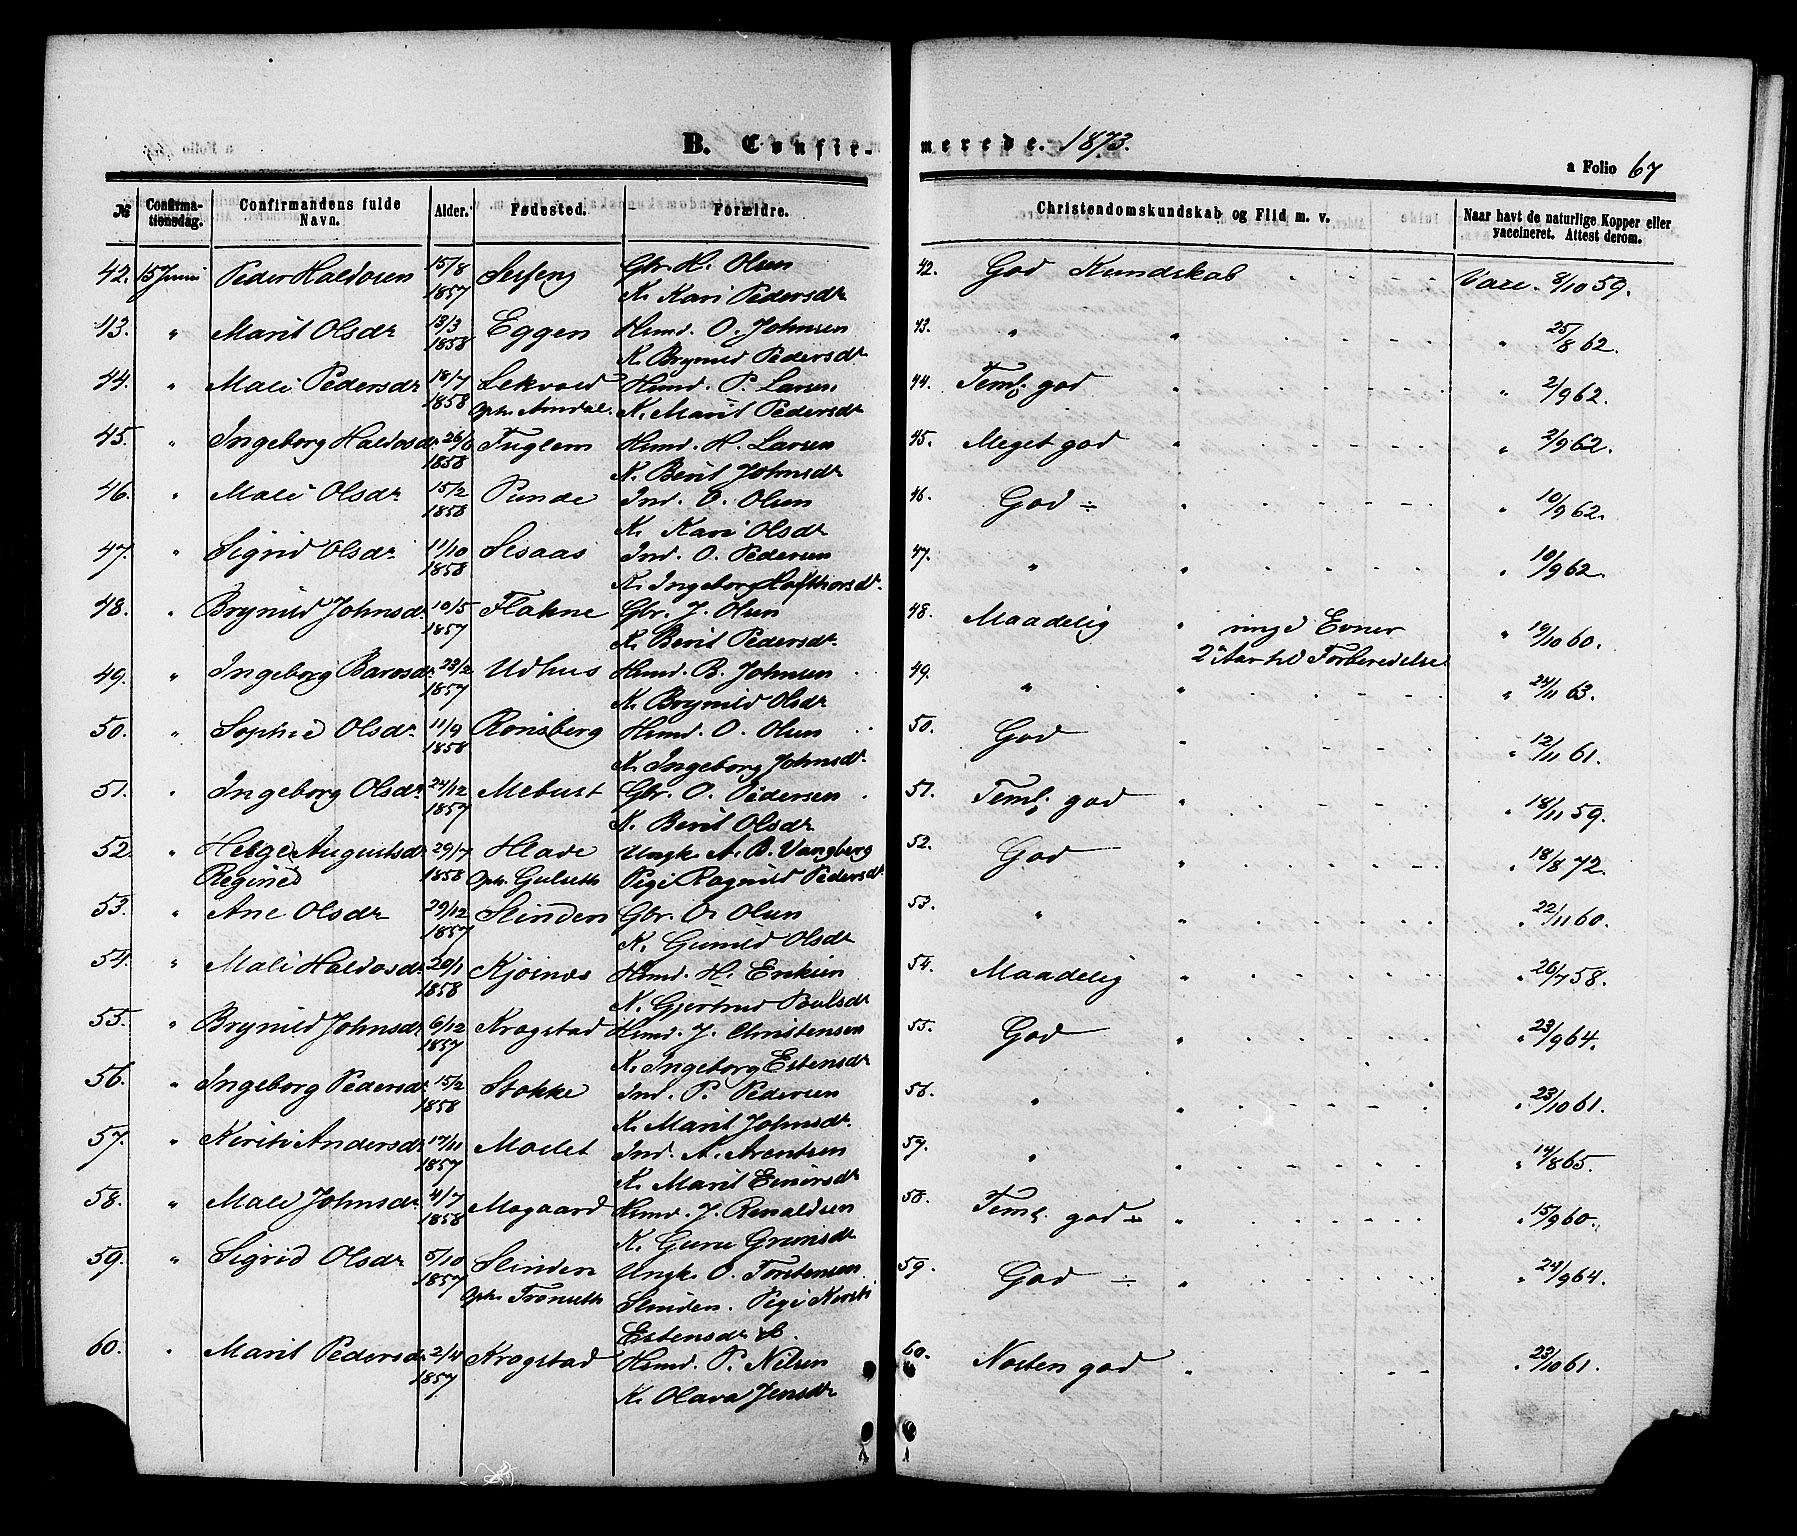 B. Confir-merede. 1873.
a Folio 67
№ Confirma-tionsdag. Confirmandens fulde Navn. Alder. Fødested. Forældre. Christendomskundskab og Flid m. v. Naar havt de naturlige Kopper eller vaccineret. Attest derom.
42. 15 Juni Peder Haldosen 15/8 Gbr. H. Olsen 42. God Kundskab Vacc. 8/10 59.
1857 K. Kari Pedersdr
43. " Marit Olsdr 13/3 Eggen Hsmd. O. Johnsen 43. " " " 25/8 62.
1858 K. Brynild Pedersdr
44. " Mali Pedersdr 18/7 Sekvold Hsmd. P. Larsen 44. Teml. god " " 2/9 62.
1858 Oph. Amdal. K. Marit Pedersdr
45. " Ingeborg Haldosdr 26/6 Fuglem Hsmd. H. Larsen 45. Meget god " " 2/9 62.
1858 K. Berit Johnsdr
46. " Mali Olsdr 15/2 Ind. O. Olsen 46. God ÷ " " 10/9 62.
1858 K. Kari Olsdr
47. " Sigrid Olsdr 11/10 Sesaas Ind. O. Pedersen 47. " " " 10/9 62.
1858 K. Ingeborg Hafthorsdr
48. " Brynild Johnsdr 10/5 Flakne Gbr. J. Olsen 48. Maadelig " ringe Evner " 19/10 60.
1857 K. Berit Pedersdr. 2 Aar til Forberedelse
49. " Ingeborg Barosdr 23/2 Udhus Hsmd. B. Johnsen 49. " " " 24/11 63.
1857 K. Brynild Olsdr
50. " Sophie Olsdr 11/9 Rønsberg Hsmd. O. Olsen 50. God " " 12/11 61.
1858 K. Ingeborg Johnsdr
51. " Ingeborg Olsdr 24/12 Mebust Gbr. O. Pedersen 51. Teml. god " " 18/11 59.
1857 K. Berit Olsdr
52. " Helge Augustsdr 29/7 Hlade Ungk. A. B. Vangberg 52. God " " 18/8 72.
Regined 1858 Oph. Gulseth Pige Ragnild Pedersdr
53. " Ane Olsdr 29/12 Slinden Gbr. O. Olsen 53. " " " 22/11 60.
1857 K. Gunild Olsdr
54. " Mali Haldosdr 20/1 Kjøsnes Hsmd. H. Eriksen 54. Maadelig " " 26/7 58.
1858 K. Gjertrud Poulsdr
55. " Brynild Johnsdr 6/12 Krogstad Hsmd. J. Christensen 55. God " " 23/9 64.
1857 K. Ingeborg Estensdr
56. " Ingeborg Pedersdr 15/2 Stokke Ind. P. Pedersen 56. " " " 23/10 61.
1858 K. Marit Johnsdr.
57. " Kirsti Andersdr 17/11 Moslet Ind. A. Arentsen 57. " " " 14/8 65.
1857 K. Marit Einersdr
58. " Mali Johnsdr 4/7 Mogaard Hsmd. J. Renaldsen 58. Teml. god ÷ " " 15/9 60.
1858 K. Guru Grimsdr
59. " Sigrid Olsdr 5/10 Slinden Ungk. O. Torstensen 59. God ÷ " " 24/9 64.
1857 Oph. Trønseth Slinden. Pige Kirsti
Estensdr
60. " Marit Pedersdr 2/4 Krogstad Hsmd. P. Nilsen 60. Næsten god " " 23/10 61.
1857 K. Olava Jensdr